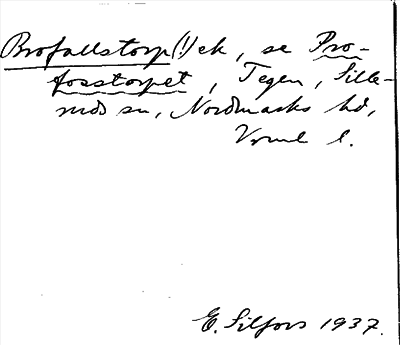 Brofallstorp(!)ek, se Pro-
fosstorpet, Tegen, Sille-
mds sn, Nordmarks hd,
Vrml l.
E. Silfors 1937.